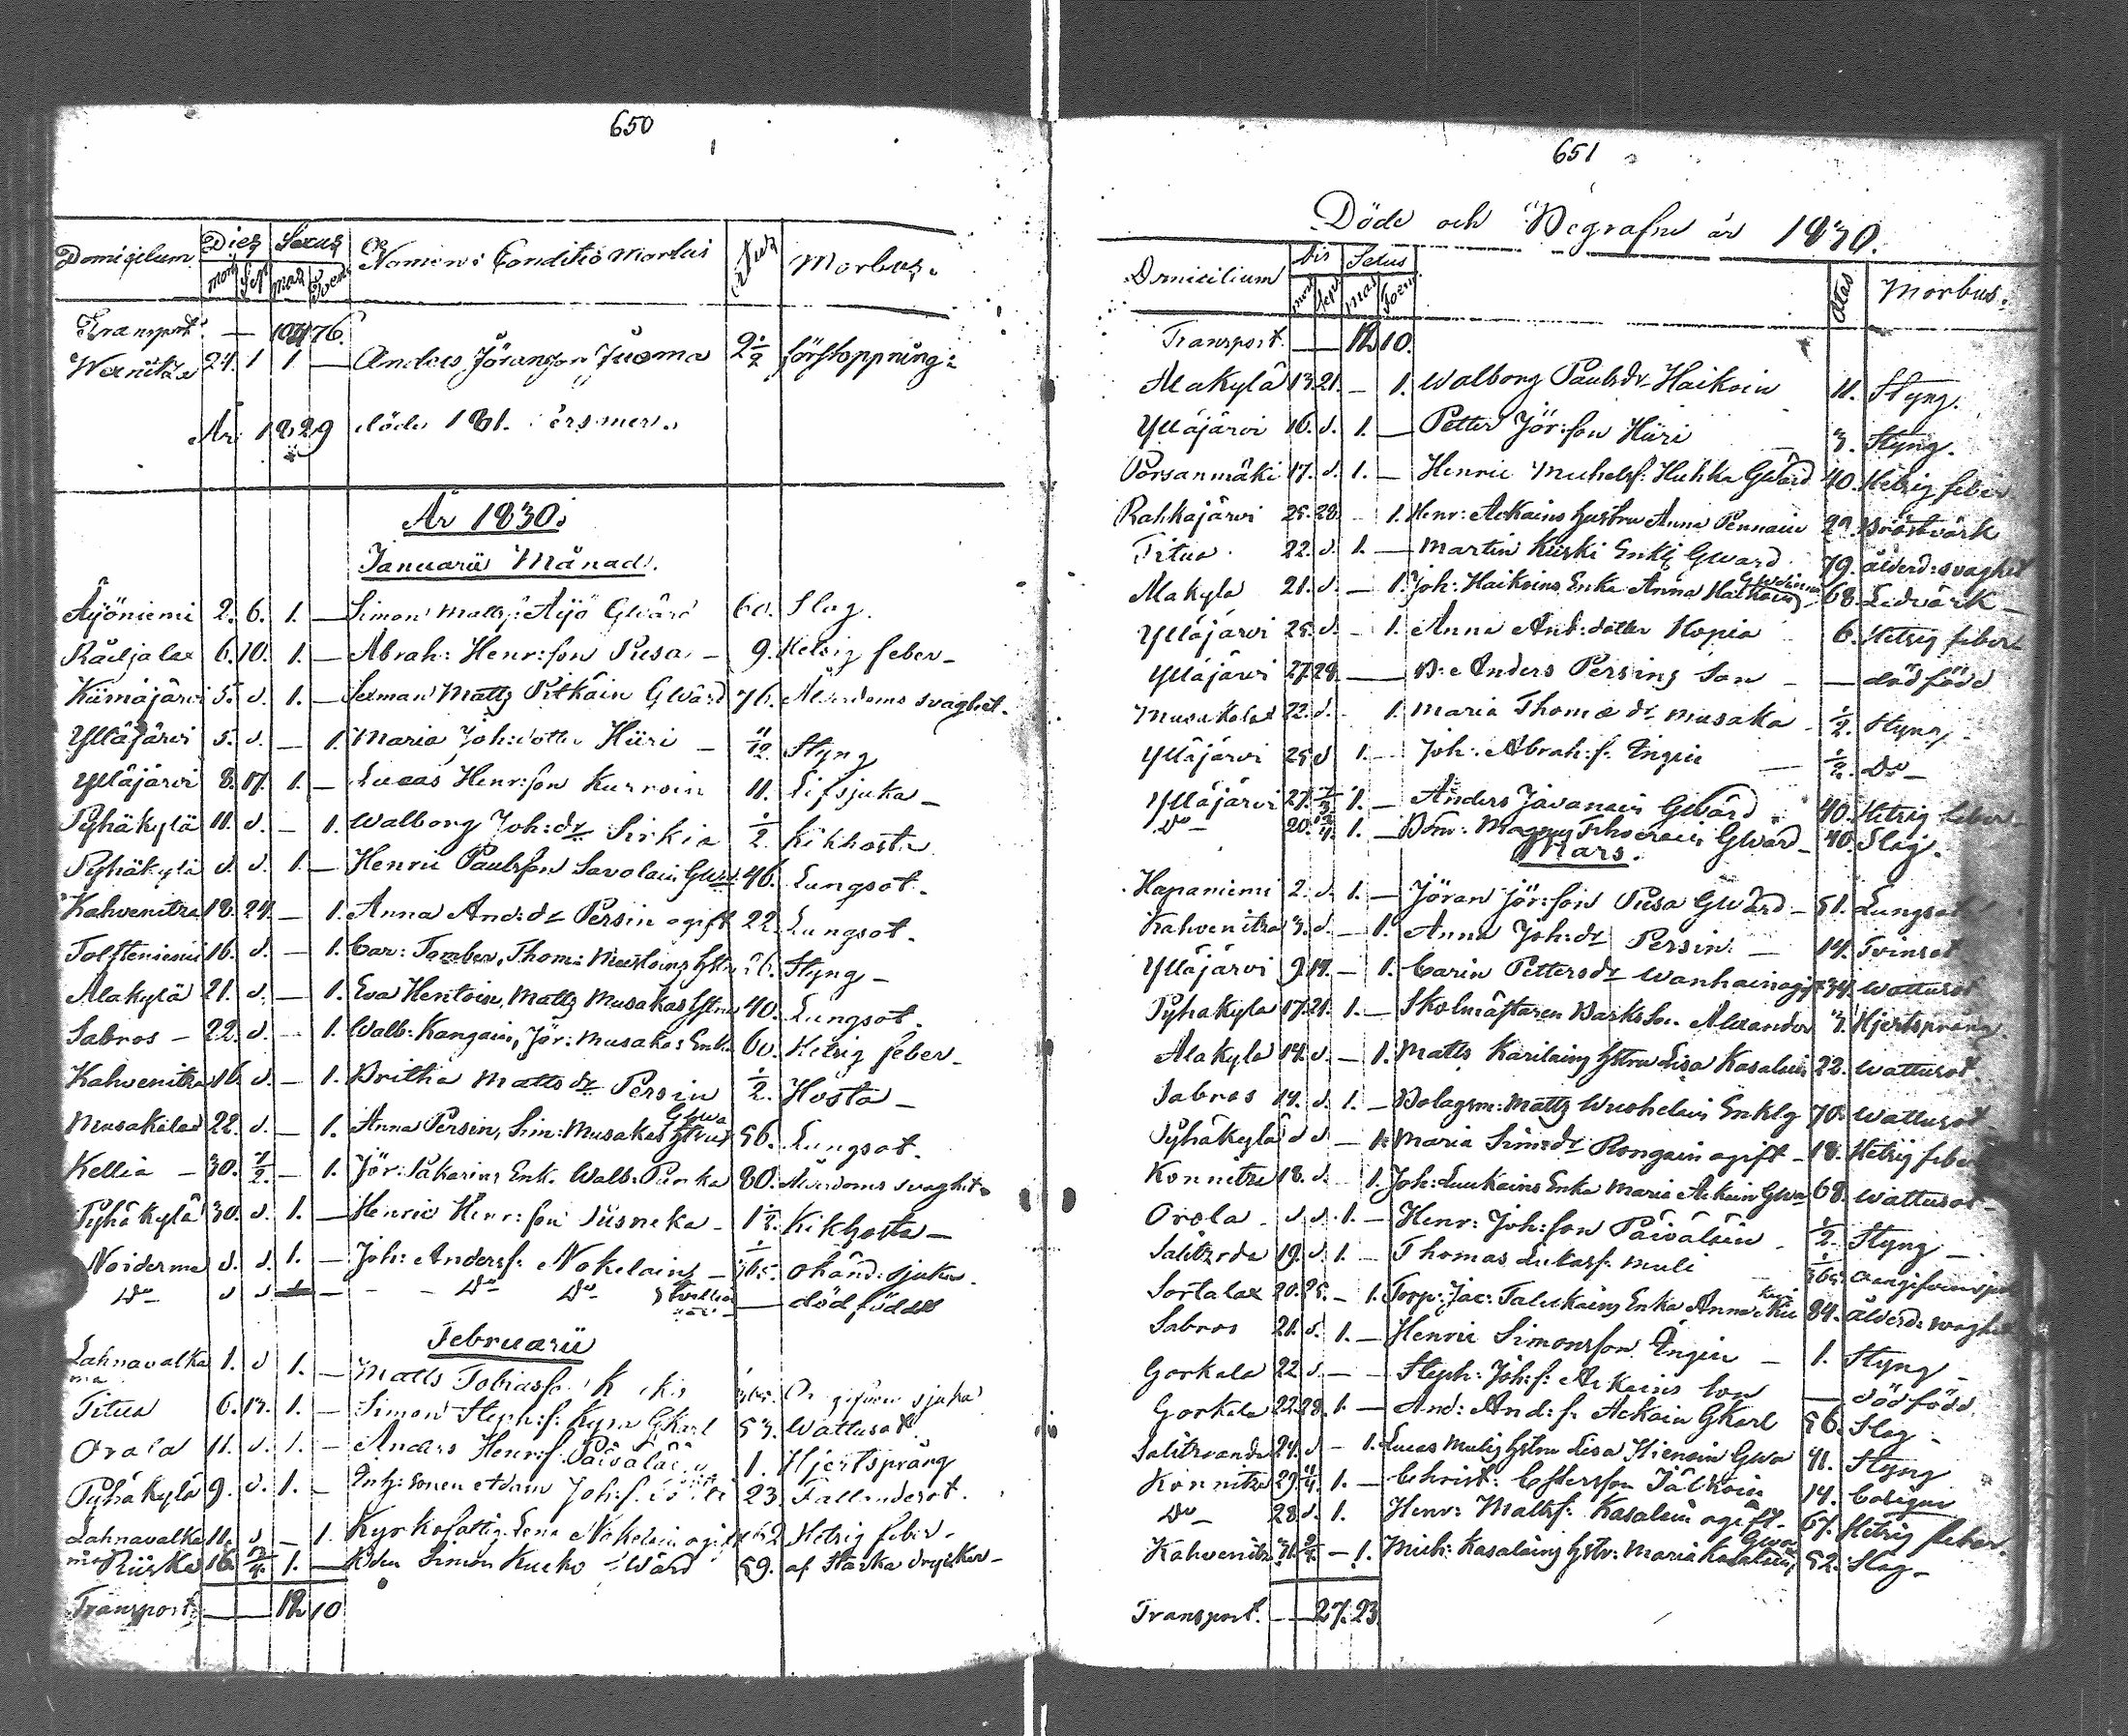 650
Domicilum Dies Sexus Nomen & Conditio mortui Ætas Morbus.
mort Sep mas Foem
Transport. — 104 76.
Wernitza 24 1 1 — Anders Jöransson Juoma 2 1/2 förstoppning.
År 1829 döde 181. Personer.
År 1830.
Januarii Månad.
Äyöniemi 2. 6. 1. — Simon Matts: Äyö Gwärd 60. Slag.
Räihjalax 6. 10. 1. — Abrah: Henr: son Pusa — 9. Hetsig feber —
Kiimajärvi 5. d. 1. — Sexman Matts Pitkäin Gwärd 76. Ålderdoms svaghet.
Ylläjärvi 5. d. — 1. Maria Joh: dotter Hiiri — 11/12. Styng
Ylläjärvi 8. 17. 1. — Lucas Henr: son Kurroin 11. Lifsjuka —
Pyhäkylä 11. d. — 1. Walborg Joh: dr Sirkiä 1/2. Kikhosta
Pyhäkylä d. d. 1. — Henric Paulsson Savolain Gwd. 46. Lungsot.
Kahvenitza 18. 24. — 1. Anna And: dr Persin ogift 22. Lungsot.
Tolfteniemi 16. d. — 1. Car: Tomber, Thom: hstru 26. Styng —
Alakylä 21. d. — 1. Eva Hentoin, Matts Musakas hstru 40. Lungsot.
Sabros — 22. d. — 1. Walb: Kangain, Jör: Musakas Enka 60. Hetsig feber —
Kahvenitza 16. d. — 1. Britha Matts dr Persin 1/2. Hosta —
Musakalax 22. d. — 1. Anna Persin, Sim: Musakas hstru Gwa 56. Lungsot.
Kellia — 30. 7/2. — 1. Jör: Säkarins Enk. Walb: Punka 80. Ålderdoms svaghet.
Pyhäkylä 30. d. 1. — Henric Henr: son Susneka — 1 1/2. Kikhosta —
Noiderma d. d. 1. — Joh: Andersf: Nokelain — 1/365. okänd: sjukd.
Do — d d — — Do Do — dödfödd
Februarii
Lahnavalkama 1. d 1. — Matts Tobiasson 365. sjuka
Titua 6. 13. 1. — Simon Steph: f. Kyra Gkarl 53. Wattusot.
Orala 11. d. 1. — Anders Henr: f. Päiväläin 1. Hjertsprång
Pyhäkylä 9. d. 1. — Adam Joh: f. 23. Fallandesot.
Lahnavalkama 11. d — 1. Kyrkofattig. Lena Nokelain ogift 62 Hetsig feber.
Kiiskä 16. 1. — Bden Simon Kucko Gwärd 59. af starka drycker —
Transport. — 12 10
651
Döde och Begrafne år 1830.
Domicilium Dies Sexus Ætas Morbus.
mort Sepu mas Foem
Transport. — 12 10.
Alakylä 13. 21. — 1. Walborg Paulsdr Haikoin 11. Styng.
Ylläjärvi 16. d. 1. — Petter Jör: son Hiiri — 3. Styng.
Porsanmäki 17. d. 1. — Henric Michelsf. Huhka Gwärd 40. Hetsig feber
Rahkajärvi 25. 28. — 1. Henr: Ackains hustru Anna Pennain 29. Bröstvärk
Titua. 22. d. 1. — Martin Kiiski Enklg Gward. 79. ålderd: svaghet
Alakyla 21. d. — 1. Joh: Haikoins Enka Anna Haikoin 68. Ledvärk —
Ylläjärvi 25. d. — 1. Anna And: dotter Hopia 6. Hetsig feber
Ylläjärvi 27. 28. — B: Anders Persins Son — — dödföd
Musakalax 22. d. 1. Maria Thomæ dr Musaka 1/2. Styng.
Ylläjärvi 25 d 1. — Joh: Abrah: f. Ingin — 1/2. Do —
Ylläjärvi 27. 7/3 1. — Anders Javanain Gwärd 40. Hetsig feber.
Do — 20. 1. — Bdm: Magnus Gwärd — 40. Slag.
Mars.
Hapaniemi 2. d. 1. — Jöran Jör: son Pusa Gwärd — 51. Lungsot
Kahvenitza 3. d. — 1. Anna Joh: dr Persin. — 14. Tvinsot
Ylläjärvi 9. 14. — 1. Carin Pettersdr Wanhain ogift 34. Wattusot
Pyhakyla 17. 21. 1. — Skolmästaren Barks Son Alexander 3. Hjertsprång.
Alakyla 14. d. — 1. Matts Karilains hstru Lisa Kasalain 22. Wattusot.
Sabros 14. d. 1. — Bolagsm: Matts Wuohelain Enklg 70. Wattusot
Pyhäkylä d d — 1. Maria Sim: dr Rongain ogift — 18. Hetsig feber
Konnitza 18. d. 1. Joh: Luukains Enka Maria Ackain Gwa 68. Wattusot
Orola — d. d. 1. — Henr: Joh: son Päiväläin 1/2. Styng —
Salitzrda 19. d. 1. — Thomas Lukasf. Muli 365.
Sortalax 20. 25. — 1. Torp: Jac: Talukains Enka Anna 84. ålderd: svaghet
Sabros 21. d. 1. — Henric Simonsson Ingin — 1. Styng —
Gorkala 22 d. — — Steph: Joh: f: Ackains Son — dödföd.
Gorkala 22. 28. 1. — And: And: f. Ackain Gkarl 56. Slag.
Salitzranda 24. d — 1. Lucas Mulis hstru Lisa Hienoin Gwa 41. Styng
Konnitza 29. 1. — Christ: Jälkoin 14. Coliquer
Do — 28 d. 1. Henr: Mattsf. Kasalain ogift. 67. Hetsig feber.
Kahvenitza 31. — 1. Mich: Kasalains hstr: Maria Kasalain Gwa 52. Slag —
Transport. — 27. 23.